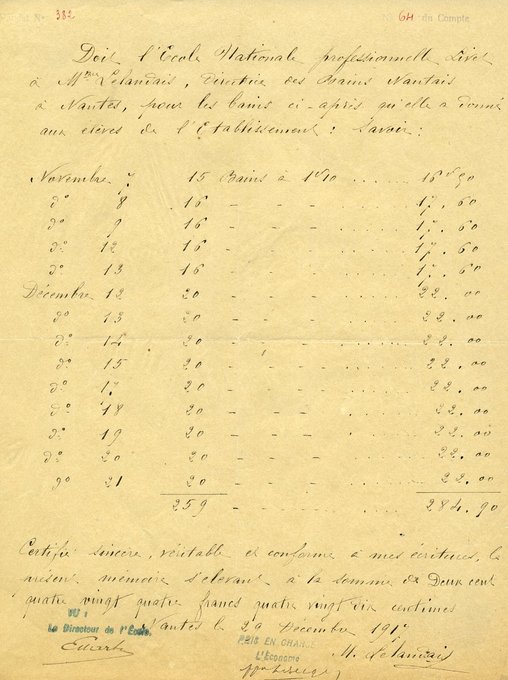 N° 382
N° 64 du Compte
Doit l'École Nationale professionnelle Livet
à Mme Lelandais, Directrice des Bains Nantais
à Nantes, pour les bains ci-après qu'elle a donné
aux élèves de l'Etablissement : Savoir :
Novembre 7 15 Bains à 1f10 ..... 16f90
do 8 16 - - - ..... 17.60
do 9 16 - - - ..... 17.60
do 12 16 - - - ..... 17.60
do 13 16 - - - ..... 17.60
Décembre 12 20 - - - ..... 22.00
do 13 20 - - - ..... 22.00
do 14 20 - - - ..... 22.00
do 15 20 - - - ..... 22.00
do 17 20 - - - ..... 22.00
do 18 20 - - - ..... 22.00
do 19 20 - - - ..... 22.00
do 20 20 - - - ..... 22.00
do 21 20 - - - ..... 22.00
259 - - - ..... 284.90
Certifié sincère, véritable et conforme à mes écritures, le
présent mémoire s'élevant à la somme de Deux cent
quatre vingt quatre francs quatre vingt dix centimes
VU :
Nantes le 29 Décembre 191
Le Directeur de l'École,
PRIS EN CHARGE
L'Économe
M. Lelandais